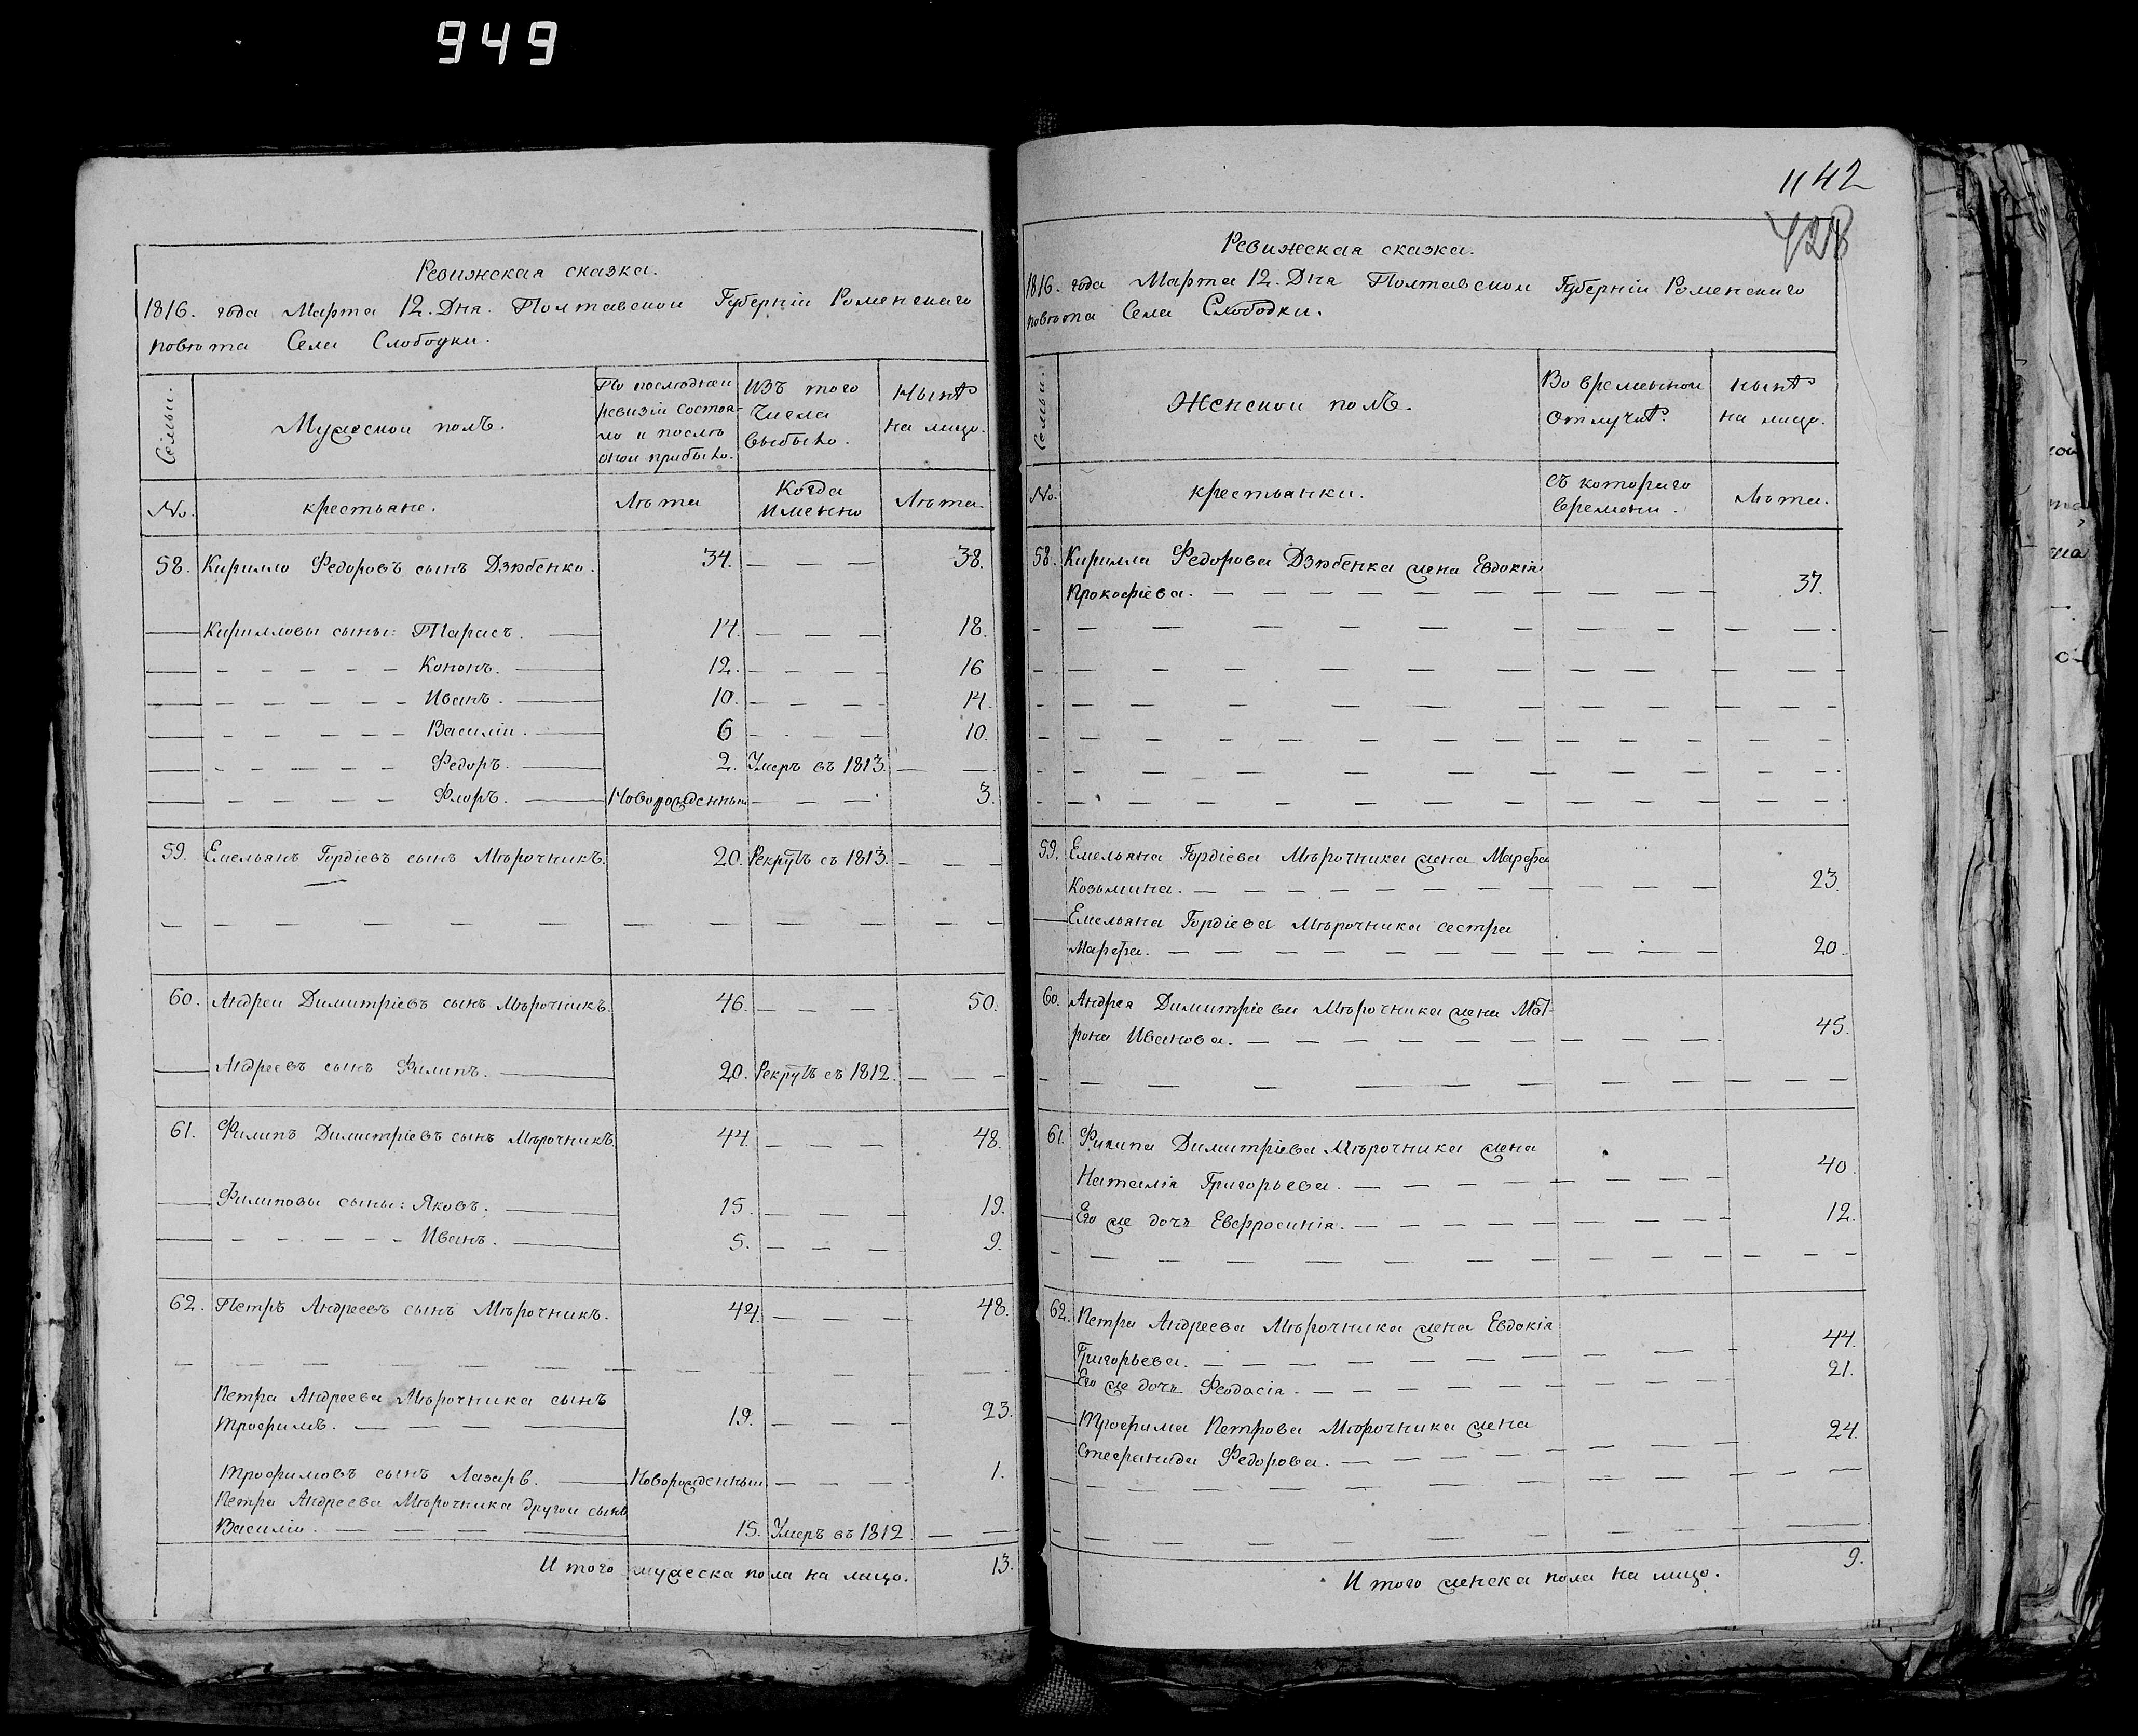 949
Ревижская сказка.
1816. года Марта 12. Дня. Полтавской Губерніи Роменскаго
повѣта Села Слободки.
Семьи.
Мужеской полъ.
По послѣдней
ревизіи состоя-
ло и послѣ
оной прибыло.
Изъ того
числа
выбыло.
Нынѣ
на лицо.
No.
крестьяне.
Лѣта
Когда
Именно
Лѣта
58. Кирилло Федоровъ сынъ Дзюбенко. 34. — — — 38.
Кирилловы сыны: Тарасъ. 14. — — — 18.
— — — — — Кононъ. 12. — — — 16
— — — — — Иванъ. 10. — — — 14.
— — — — — Василій. 6 — — — 10.
— — — — — Федоръ. 2. Умеръ въ 1813. — —
— — — — — Флоръ. Новорожденный — — — 3.
59. Емельянъ Гордіевъ сынъ Мѣрочникъ. 20. Рекрутъ съ 1813. — — —
60. Андрей Димитріевъ сынъ Мѣрочникъ. 46. — — — 50.
Андреевъ сынъ Филипъ. 20. Рекрутъ съ 1812. — — —
61. Филипъ Димитріевъ сынъ Мѣрочникъ 44. — — — 48.
Филиповы сыны: Яковъ. 15. — — — 19.
— — — — — Иванъ. 5. — — — 9.
62. Петръ Андреевъ сынъ Мѣрочникъ. 44. — — — 48.
Петра Андреева Мѣрочника сынъ
Трофимъ. — — — 19. — — — 23.
Трофимовъ сынъ Лазарь. Новорожденный — — — 1.
Петра Андреева Мѣрочника другой сынъ
Василій. — — — 15. Умеръ въ 1812. — —
И того мужеска пола на лицо. 13.
1142
428
Ревижская сказка.
1816. года Марта 12. Дня Полтавской Губерніи Роменскаго
повѣта Села Слободки.
Семьи.
Женской полъ.
Во временной
отлучкѣ.
нынѣ
на лицо.
No.
крестьянки.
съ котораго
времени.
Лѣта.
58. Кирилла Федорова Дзюбенка жена Евдокія
Прокофіева. — — — — — — — — — 37.
59. Емельяна Гордіева Мѣрочника жена Марфа
Козьмина. — — — — — — — — — 23.
Емельяна Гордіева Мѣрочника сестра
Марфа. — — — — — — — — — 20.
60. Андрея Димитріева Мѣрочника жена Мат-
рона Иванова. — — — — — — — — — 45.
61. Филипа Димитріева Мѣрочника жена
Наталія Григорьева. — — — — — — — — 40.
Его же дочь Евфросинія. — — — — — — — — 12.
62. Петра Андреева Мѣрочника жена Евдокія
Григорьева. — — — — — — — — 44.
Его же дочь Феодосія. — — — — — — — — 21.
Трофима Петрова Мѣрочника жена
Стефанида Федорова. — — — — — — — 24.
И того женска пола на лицо. 9.